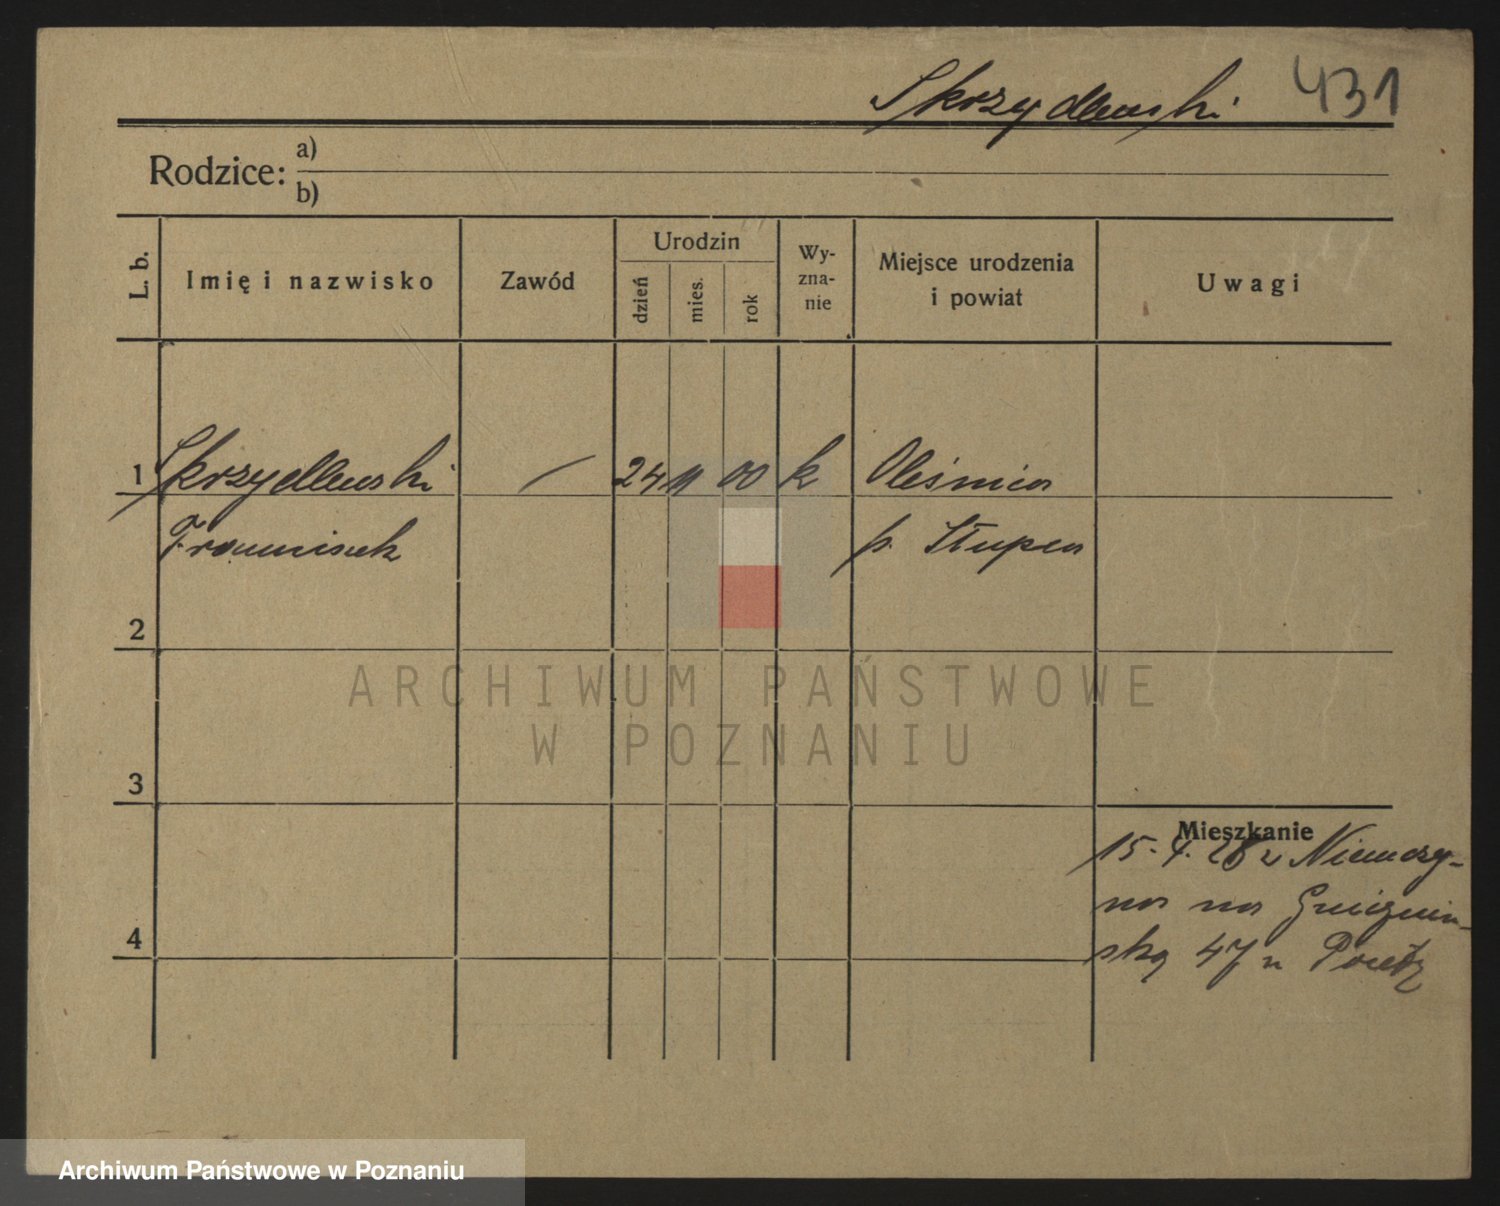 Skrzydlewski 431
Rodzice: a)
b)
L. b.
Imię i nazwisko
Zawód
Urodzin
dzień
mies.
rok
Wy-
zna-
nie
Miejsce urodzenia
i powiat
Uwagi
1 Skrzydlewski 24 11 00 k Oleśnica
Franciszek p. Słupca
2
3
4
Mieszkanie
15.4.26 z Niemczy-
na na Gnieźnień-
ską 47 u
ARCHIWUM PAŃSTWOWE
W POZNANIU
Archiwum Państwowe w Poznaniu